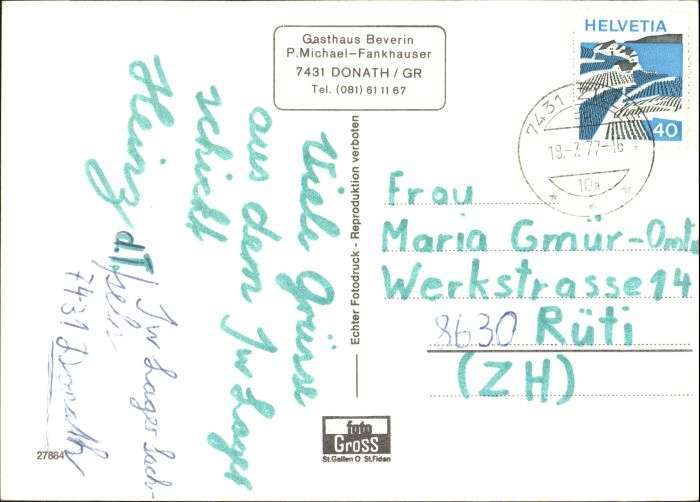 Gasthaus Beverin
P.Michael-Fankhauser
7431 DONATH/GR
Tel. (081) 61 11 67
HELVETIA
40
7431
18.-7.77-16
10a
Viele Grüsse
aus dem Jw Lager
schickt
Heinz
d.T
Jw Lager Lach-
7431 Donath
Echter Fotodruck - Reproduktion verboten
Frau
Maria Gmür-Omlin
Werkstrasse 14
8630 Rüti
(ZH)
foto
GROSS
St.Gallen O St.Fiden
27884